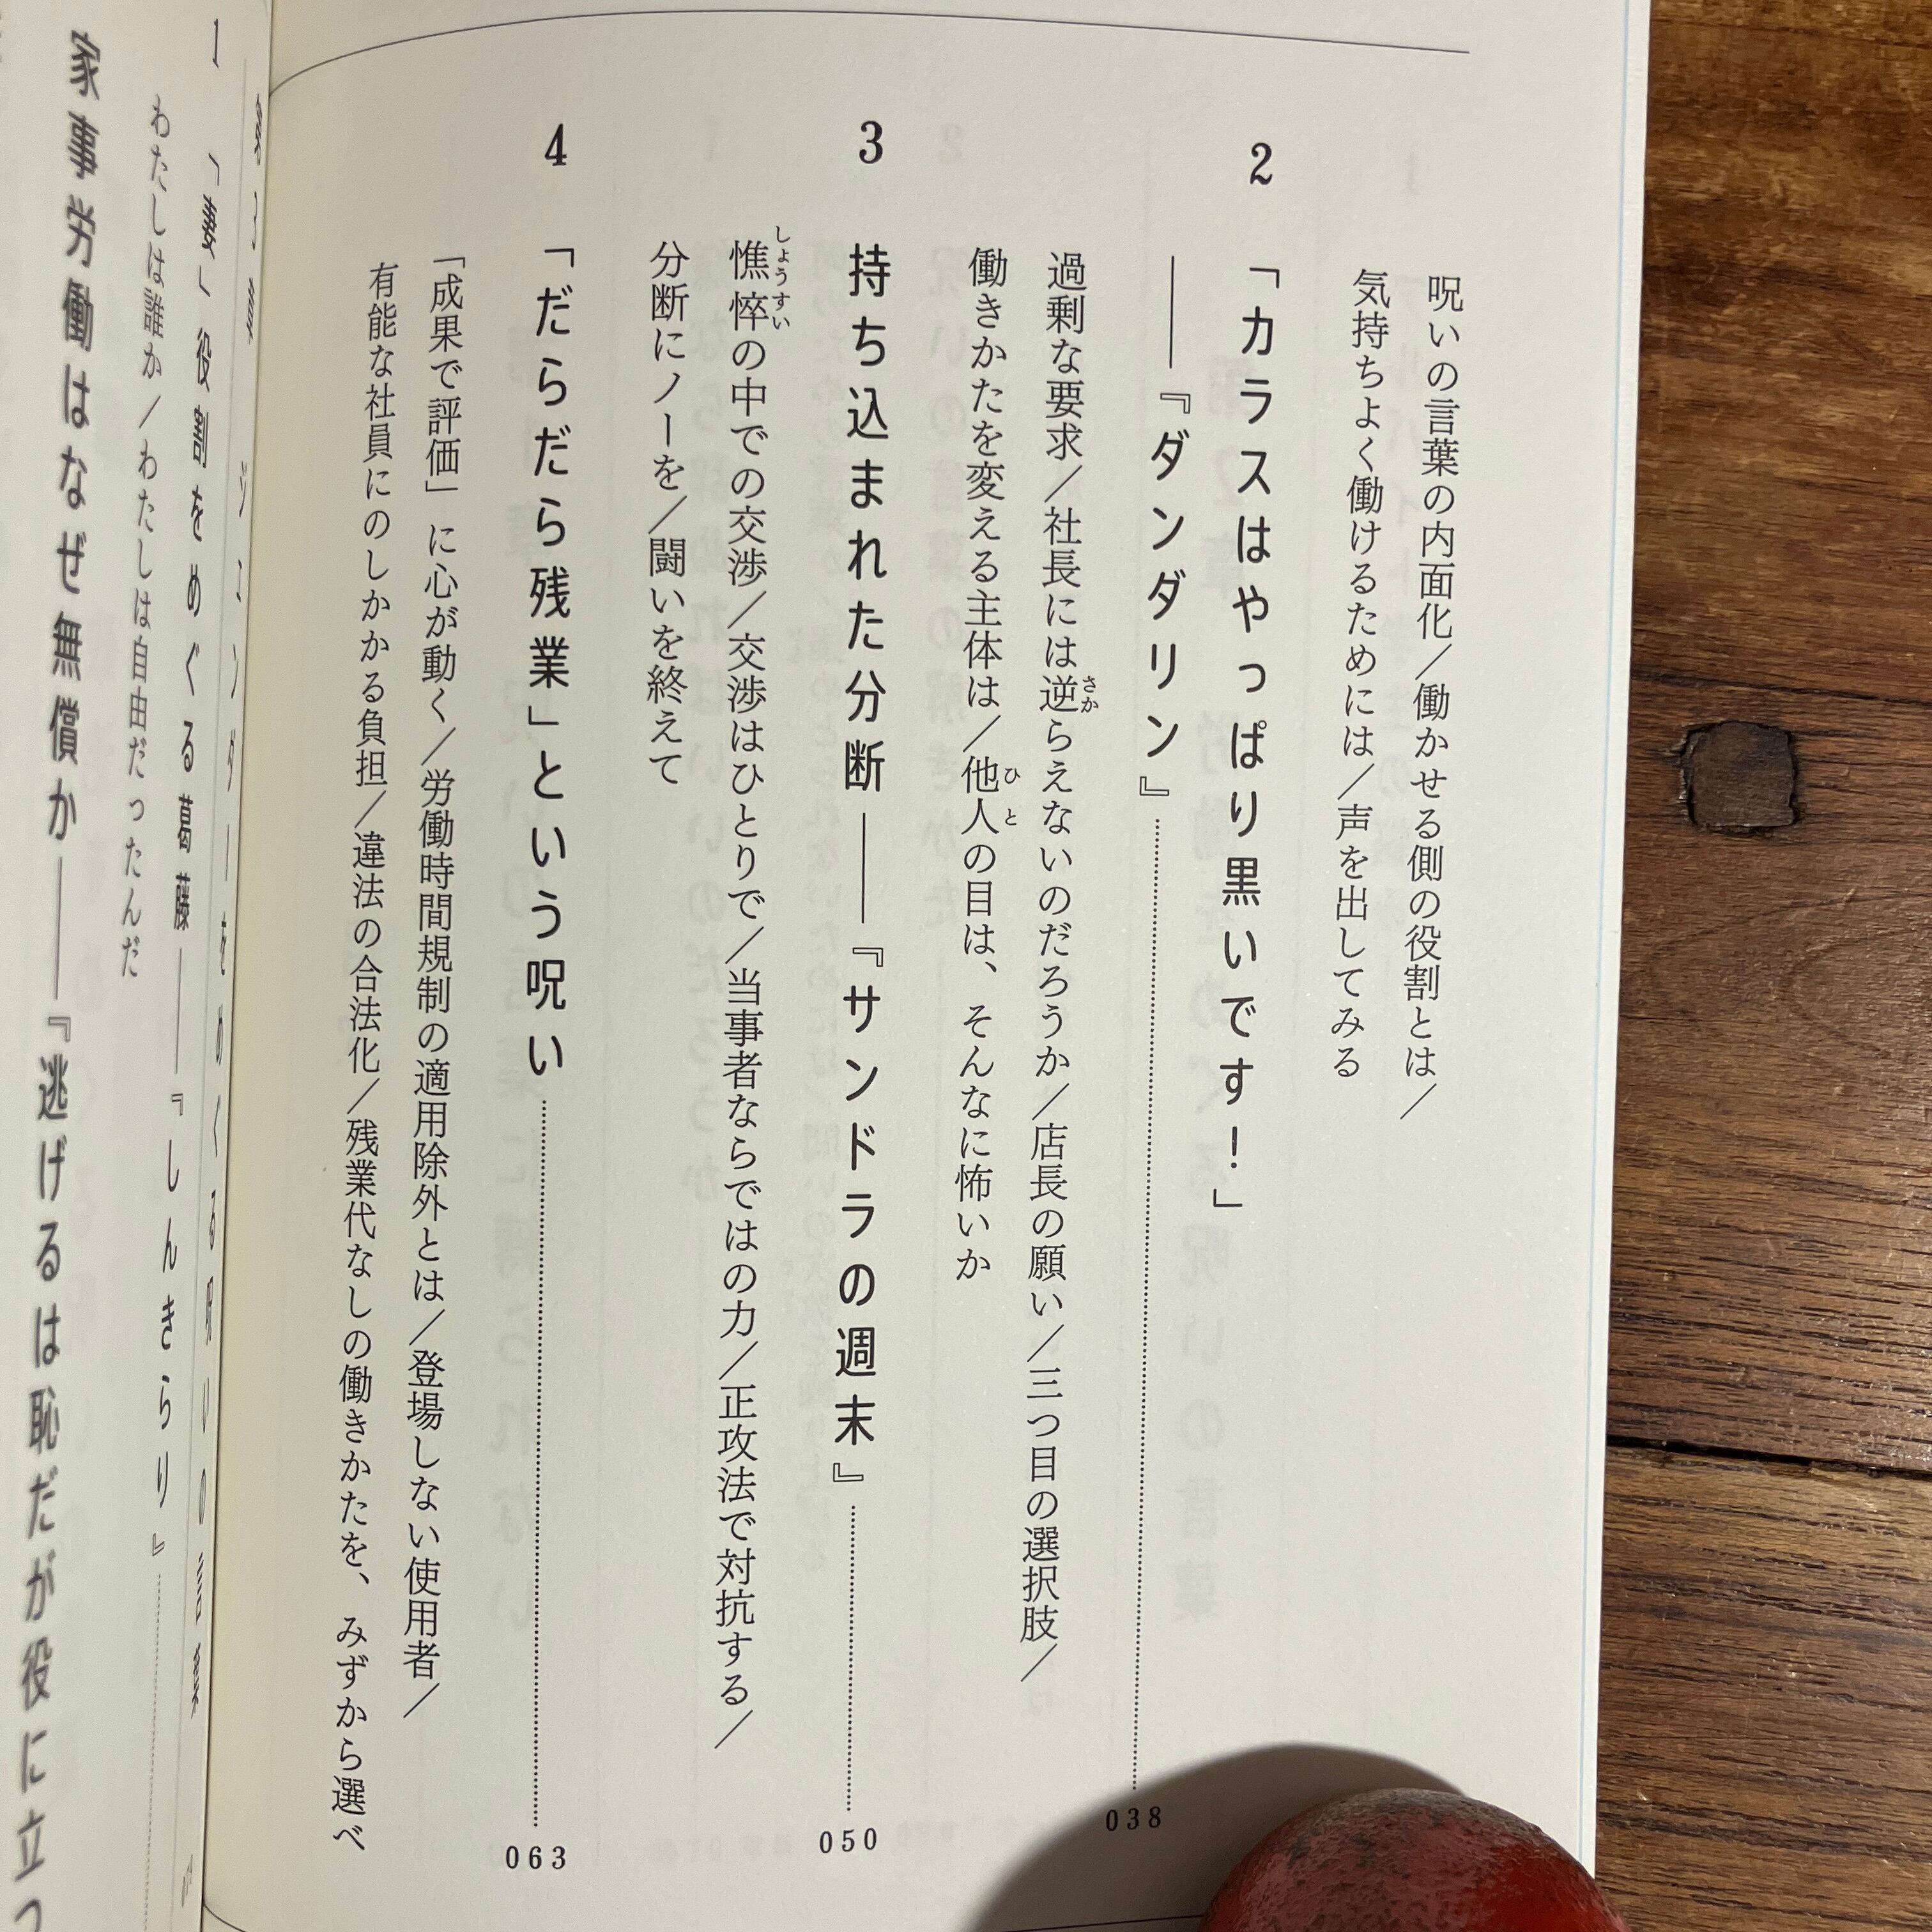 呪いの言葉の内面化／働かせる側の役割とは／
気持ちよく働けるためには／声を出してみる
2 「カラスはやっぱり黒いです！」
――『ダンダリン』 038
過剰な要求／社長には逆らえないのだろうか／店長の願い／三つ目の選択肢／
さか
働きかたを変える主体は／他人の目は、そんなに怖いか
ひと
3 持ち込まれた分断――『サンドラの週末』 050
憔悴の中での交渉／交渉はひとりで／当事者ならではの力／正攻法で対抗する／
しょうすい
分断にノーを／闘いを終えて
4 「だらだら残業」という呪い 063
「成果で評価」に心が動く／労働時間規制の適用除外とは／登場しない使用者／
有能な社員にのしかかる負担／違法の合法化／残業代なしの働きかたを、みずから選べ
ジェンダーをめぐる呪いの言葉
1 「妻」役割をめぐる葛藤――『しんきらり』
わたしは誰か／わたしは自由だったんだ
家事労働はなぜ無償か――『逃げるは恥だが役に立つ